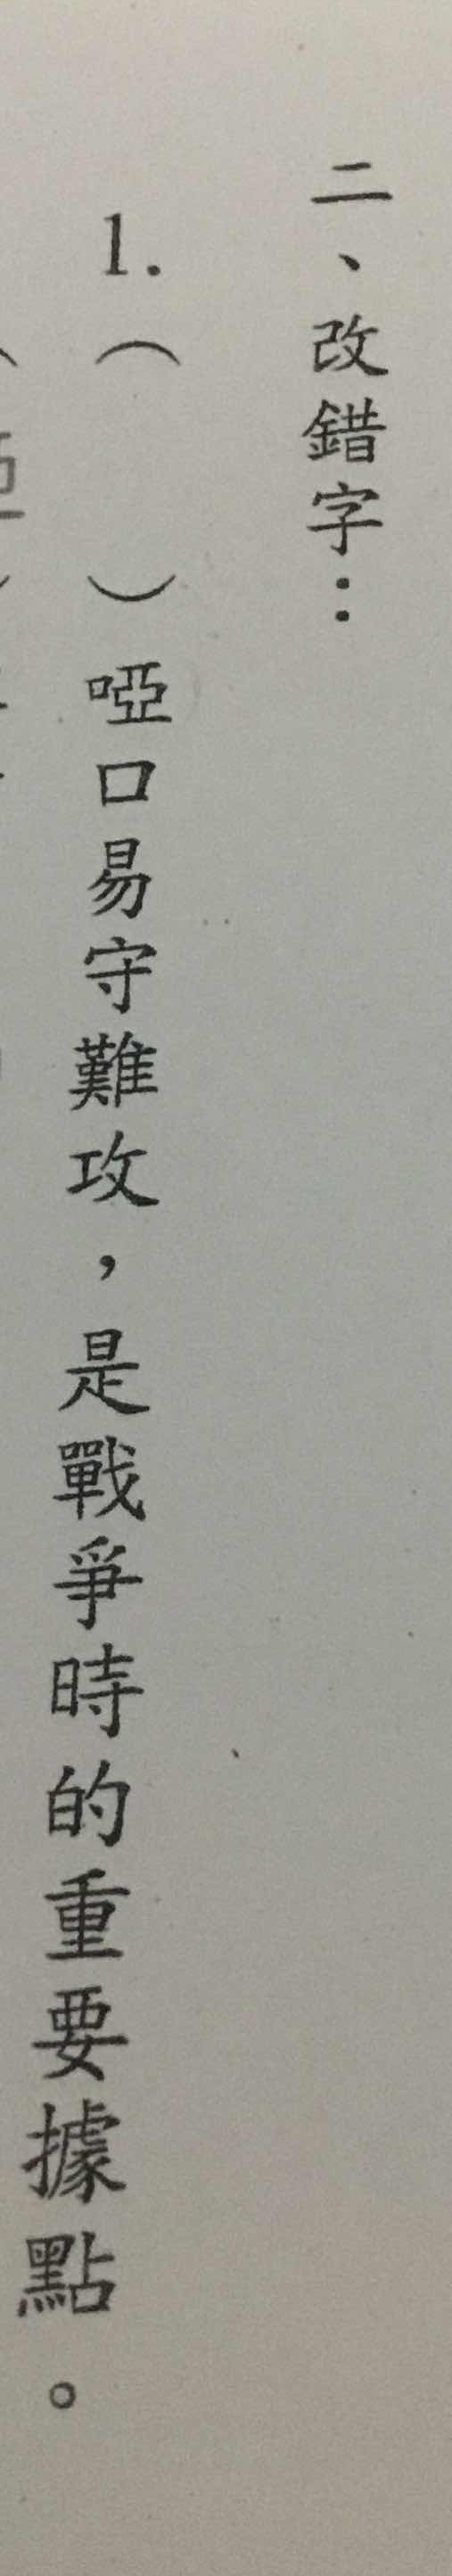 二、改錯字：
1.（　　）啞口易守難攻，是戰爭時的重要據點。